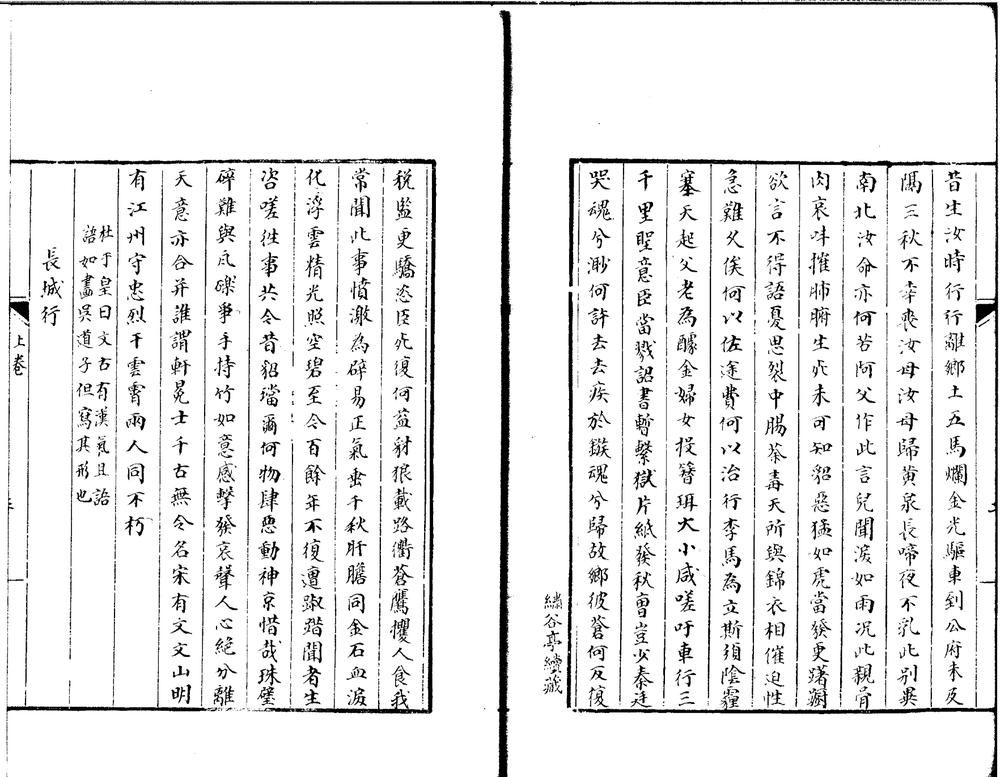 昔生汝時行行離鄉土五馬爛金光驅車到公府未及
隔三秋不幸喪汝母汝母歸黃泉長啼夜不乳此別與
南北汝命亦何苦阿父作此言兒聞淚如雨况此親骨
肉哀哞摧肺腑生死未可知貂惡猛如虎當發更躊躕
欲言不得語憂思裂中腸荼毒天所與錦衣相催迫性
急難久俟何以佐途費何以治行李馬為立斯須陰霾
塞天起父老為醵金婦女投簪珥大小咸嗟吁車行三
千里聖意臣當戮詔書暫繫獄片紙發秋曹豈少秦廷
哭魂兮渺何許去去疾於鏃魂兮歸故鄉彼蒼何反復
繡谷亭續藏
稅監更驕恣臣死復何益豺狼載路衢蒼鷹攫人食我
常聞此事憤激為辟易正氣垂千秋肝膽同金石血淚
化浮雲精光照空碧至今百餘年不復遭踧踖聞者生
咨嗟徃事共今昔貂璫爾何物肆惡動神京惜哉珠璧
碎難與瓦礫爭手持竹如意感擊發哀聲人心絕分離
天意亦合并誰謂軒冕士千古無令名宋有文文山明
有江州守忠烈干雲霄兩人同不朽
杜于皇曰文古有漢氣且語
語如畫吳道子但寫其形也
長城行
上卷